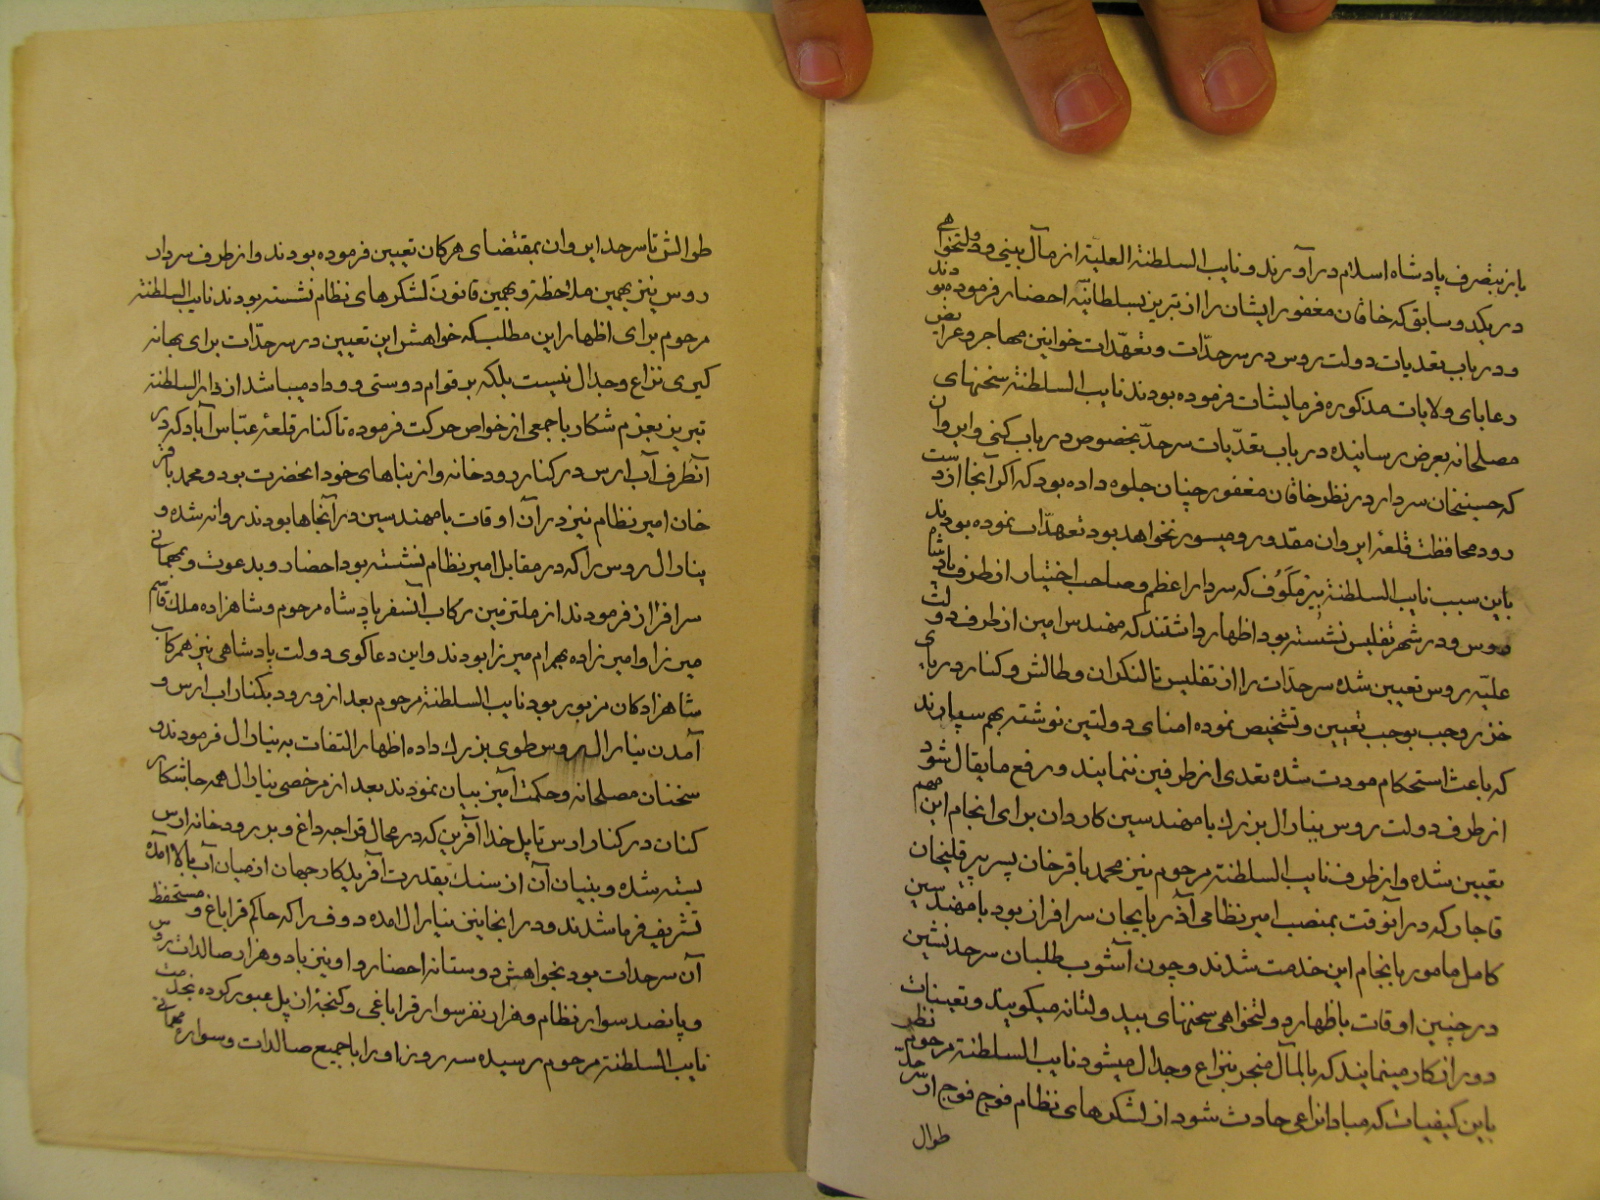 باز بتصرف پادشاه اسلام در آورند و نایب السلطنة العلیة از مآل بینی و دولتخواهی
در یکدو سابق که خاقان مغفور ایشان را از تبریز بسلطانیّه احضار فرموده بودند
و در باب تعدیات دولت روس در سرحدّات و تعهّدات خوانین مهاجر و عرایض
دعایای ولایات مذکوره فرمایشات فرموده بودند نایب السلطنة سخنهای
مصلحانه بعرض رسانیده در باب تعدّیات سرحدّ بخصوص در باب کنی و ایروان
که حسینخان سردار در نظر خاقان مغفور چنان جلوه داده بود که اگر آنجا از دست
رود محافظت قلعهٔ ایروان مقدور و میسور نخواهد بود تعهدّات نموده بودند
باین سبب نایب السلطنة بیرملوُف که سردار اعظم و صاحب اختیار از طرف پادشاه
روس و در شهر تفلیس نشسته بود اظهار داشتند که مهندس امین از طرف دولت
علیّه روس تعیین شده سرحدّات را از تفلیس تا لنکران و طالش و کنار دریای
خزر وجب بوجب تعیین و تشخیص نموده امنای دولتین نوشته بهم سپارند
که باعث استحکام مودت شده تعدی از طرفین ننمایند و رفع ما یقال شود
از طرف دولت روس ینارال بزرك با مهندسین کاردان برای انجام این مهم
تعیین شده و از طرف نایب السلطنة مرحوم نیز محمد باقر خان پسر پیرقلیخان
قاجار که در آنوقت بمنصب امیر نظامی آذربایجان سرافراز بود با مهندسین
کامل مامور بانجام این خدمت شدند و چون آشوب طلبان سرحد نشین
در چنین اوقات باظهار دولتخواهی سخنهای بیدولتانه میکویند و تعیینات
دور از کار مینمایند که بالمآل منجر بنزاع و جدال میشود نایب السلطنة مرحوم نظر
باین کیفیات که مبادا نزاعی حادث شود از لشکرهای نظام فوج فوج از سرحدّ
طوال
طوالش تا سرحد ایروان بمقتضای هر کان تعیین فرموده بودند و از طرف سردار
روس نیز بهمین ملاحظه و بهمین قانون لشکرهای نظام نشسته بودند نایب السلطنة
مرحوم برای اظهار این مطلب که خواهش این تعیین در سرحدّات برای بهانه
کیری نزاع و جدال نیست بلکه بر قوام دوستی و وداد میباشد از دار السلطنة
تبریز بعزم شکار با جمعی از خواص حرکت فرموده تا کنار قلعهٔ عبّاس آباد که در
آنطرف آب ارس در کنار رودخانه و از بناهای خود انحضرت بود و محمد باقر
خان امیر نظام نیز در آن اوقات با مهندسین در آنجاها بودند روانه شده و
ینارال روس را که در مقابل امیر نظام نشسته بود احضار و بدعوت و بمهمانی
سرافراز فرمودند از ملتزمین رکاب آنسفر پادشاه مرحوم و شاهزاده ملك قاسم
میرزا و امیرزاده بهرام میرزا بودند و این دعا کوی دولت پادشاهی نیز همرکاب
شاهزادکان مزبور بود نایب السلطنة مرحوم بعد از ورود بکنار اب ارس و
آمدن ینارال روس طوی بزرك داده اظهار التفات به ینارال فرمودند و
سخنان مصلحانه و حکمت آمیز بیان نمودند بعد از مرخصی ینارال همه جا شکار
کنان در کنار ارس تا پل خدا آفرین که در محال قراجه داغ و بر رودخانه ارس
بسته شده و بنیان آن از سنك بقدرت آفریدکار جهان از میان آب بالا آمده
تشریف فرما شدند و در اینجا نیز ینارال امده دوف را که حاکم قراباغ و مستحفظ
آن سرحدات بود بخواهش دوستانه احضار و او نیز با دو هزار صالدات روس
و پانصد سوار نظام و هزار نفر سوار قراباغی و کنجهٔ از پل عبور کرده بخدمت
نایب السلطنة مرحوم رسیده سه روز او را با جمیع صالدات و سواره مهمانی